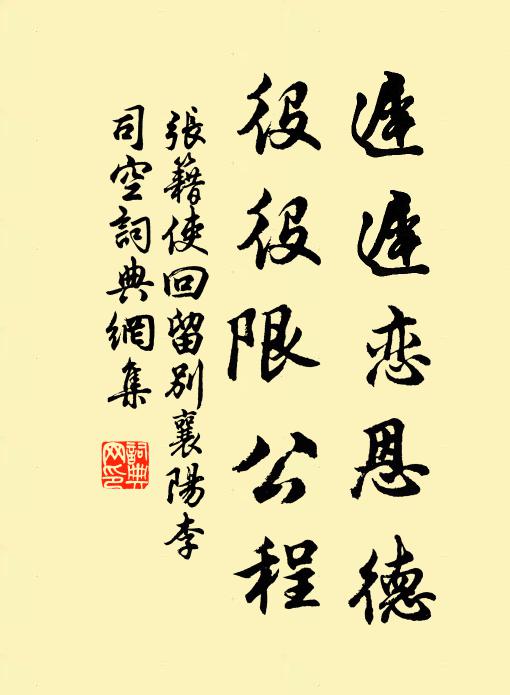 遲遲恋恩德
役役限公程
張籍使回留別襄陽李
司空詞典網集
詞典
网印